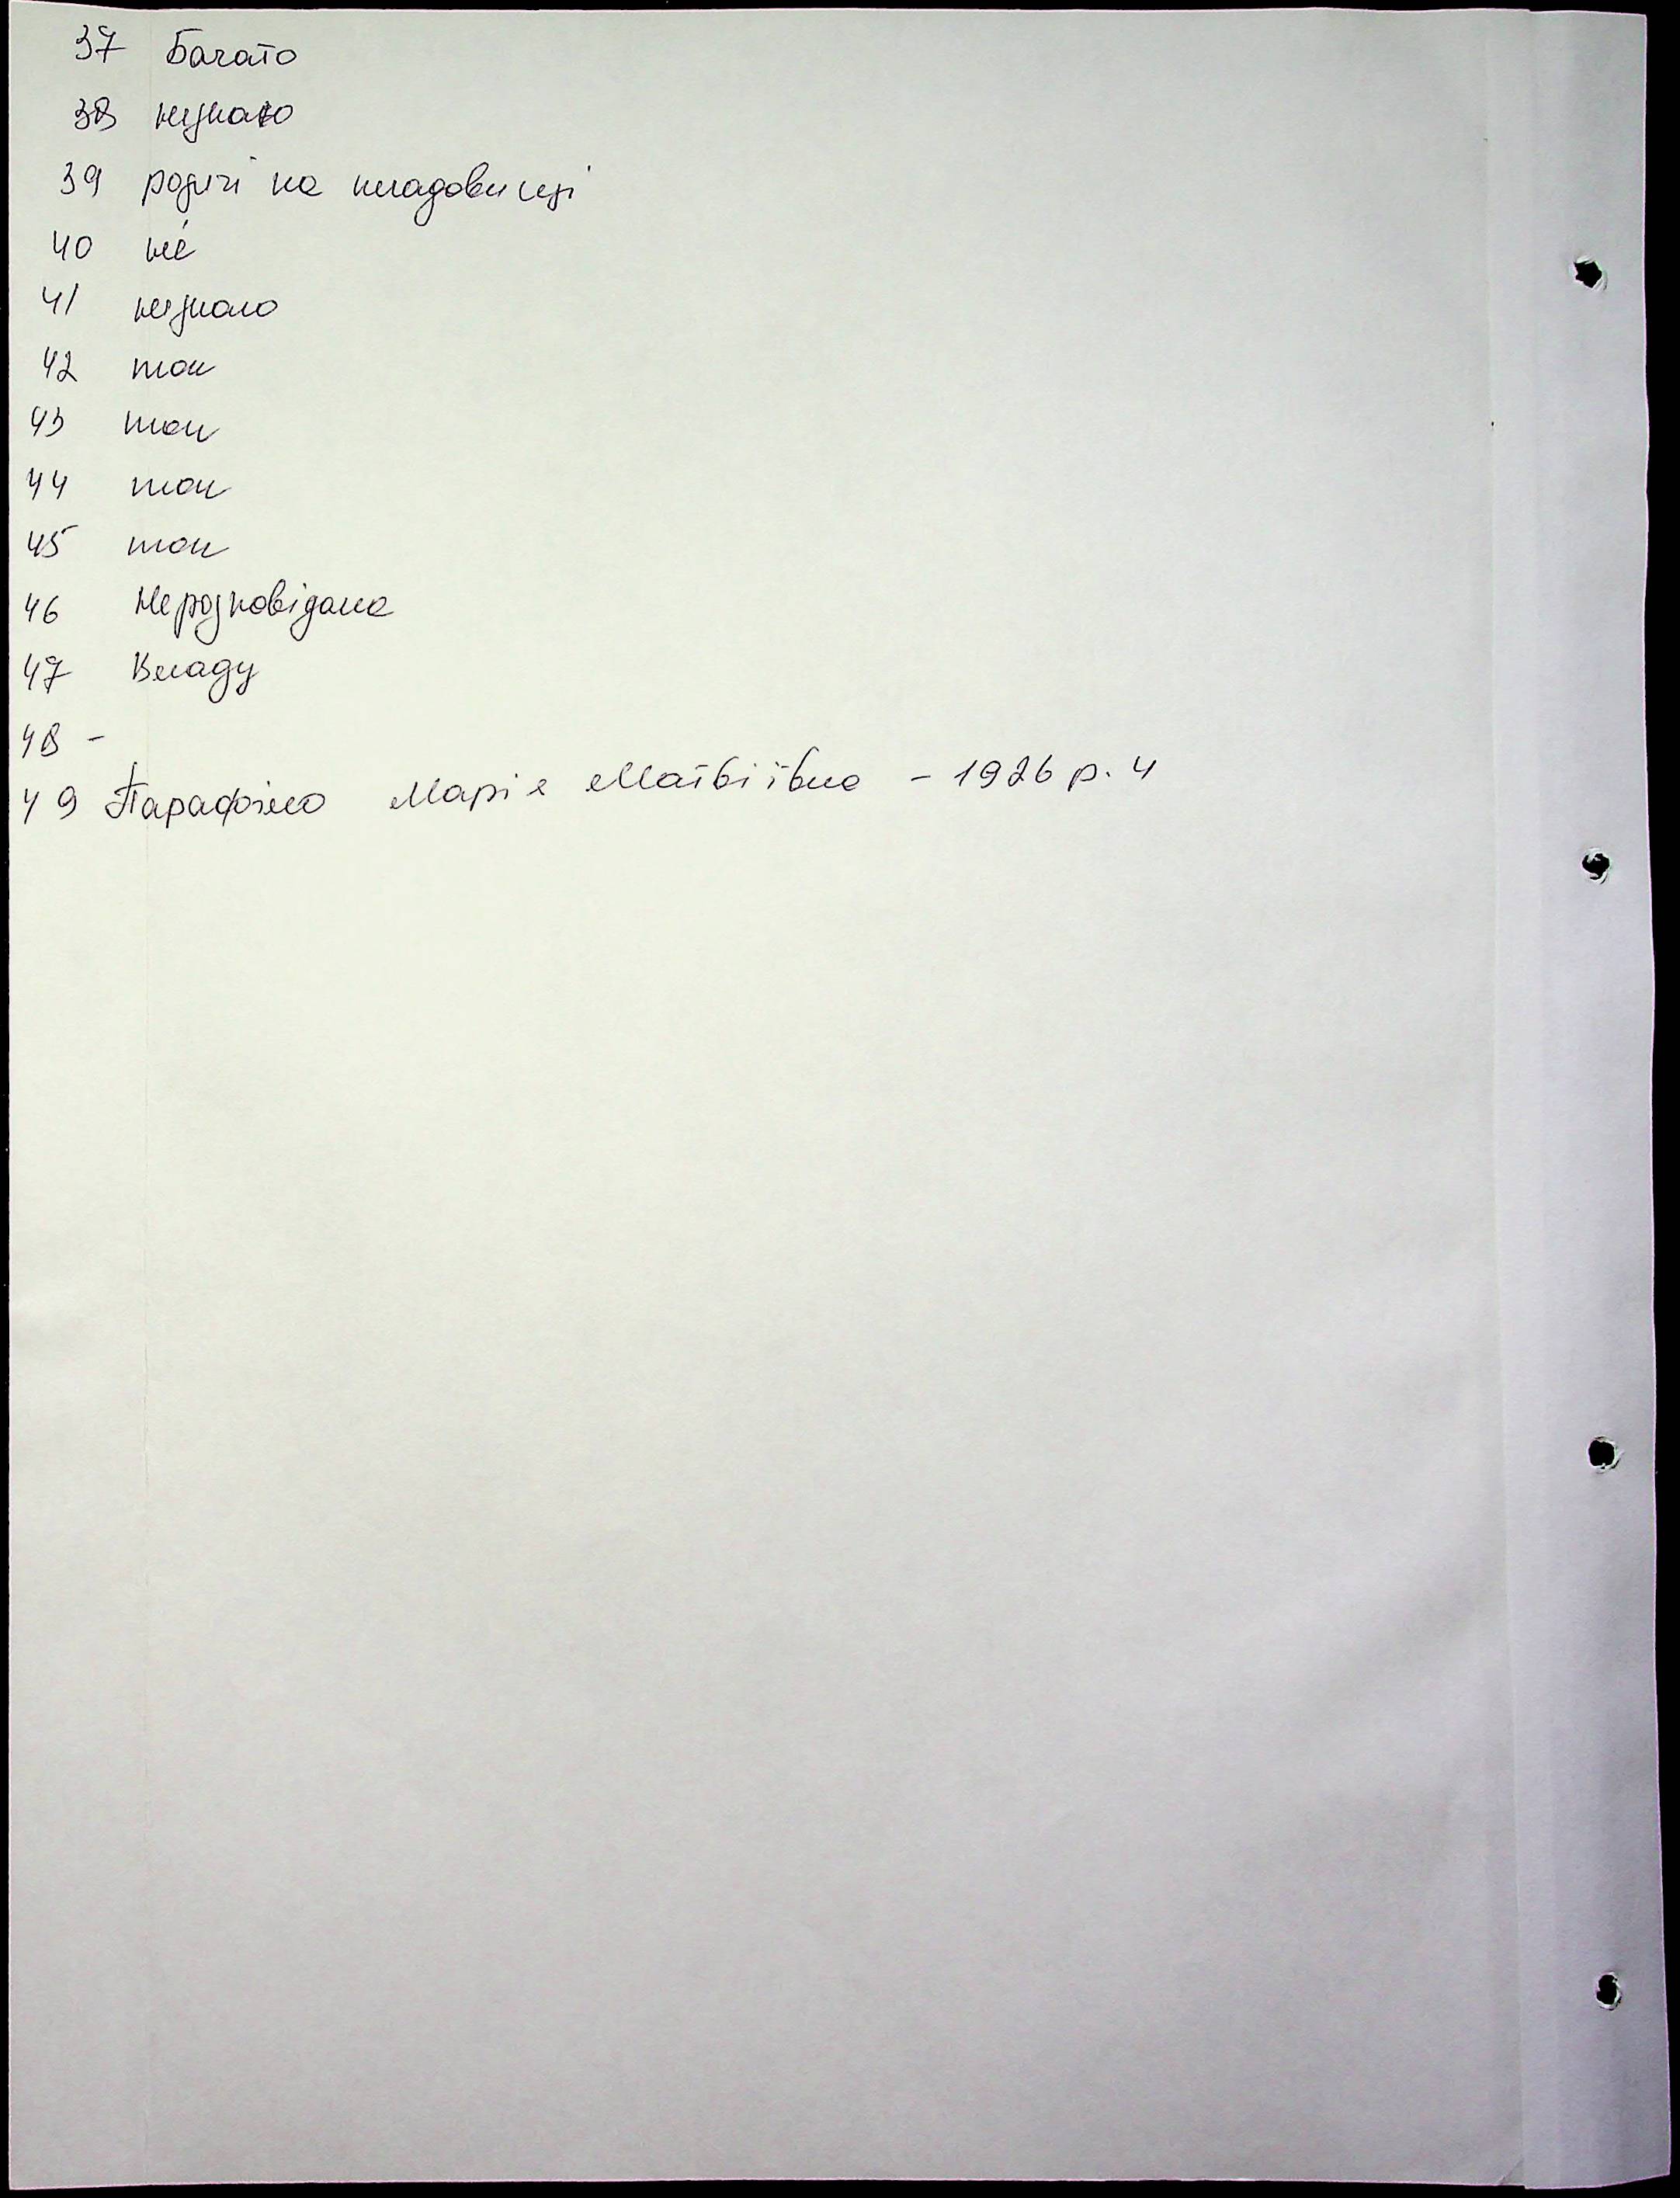 37 Багато
38 незнаю
39 родичі на кладовищі
40 нє
41 незнаю
42 так
43 так
44 так
45 так
46 Нерозповідала
47 Владу
48 -
49 Марія Матвіївна - 1926 р. 4